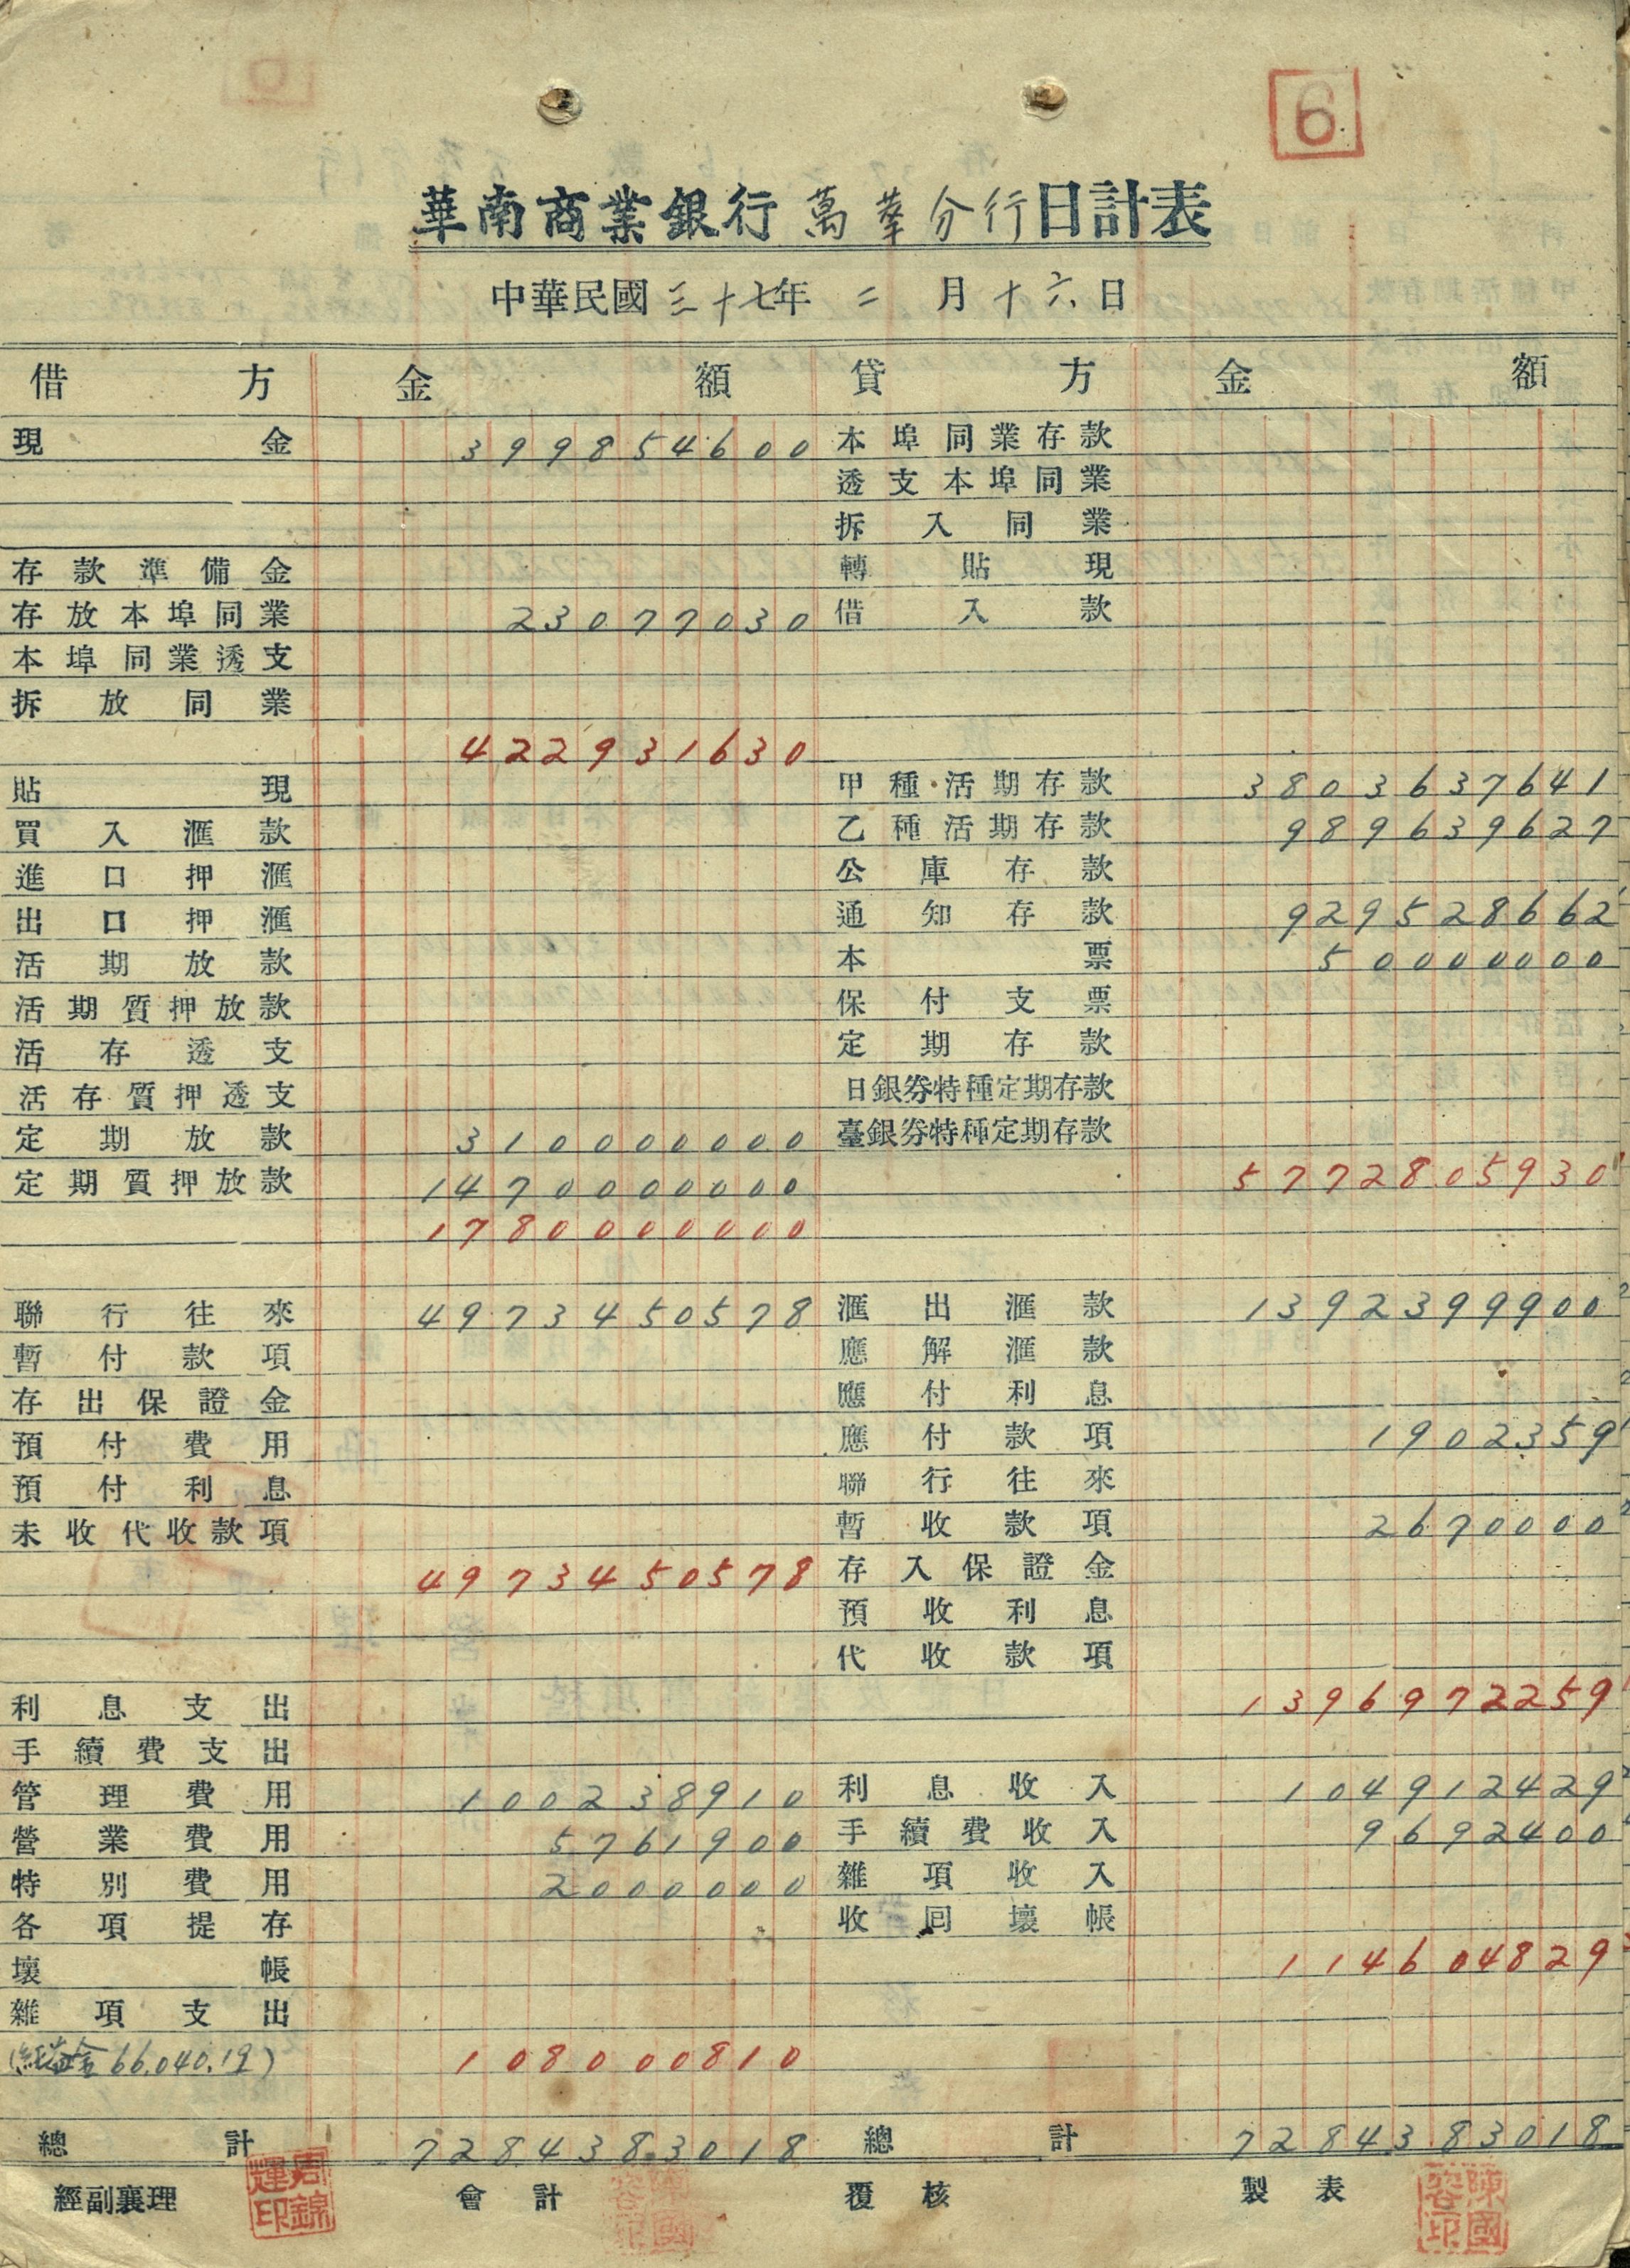 6
華南商業銀行萬華分行日計表
中華民國三十七年二月十六日
借方 金額 貸方 金額
現金 399854600 本埠同業存款
透支本埠同業
拆入同業
存款準備金 轉貼現
存放本埠同業 23077030 借入款
本埠同業透支
拆放同業
422931630
貼現 甲種活期存款 3803637641
買入滙款 乙種活期存款 989639627
進口押滙 公庫存款
出口押滙 通知存款 929528662
活期放款 本票 50000000
活期質押放款 保付支票
活存透支 定期存款
活存質押透支 日銀券特種定期存款
定期放款 310000000 臺銀券特種定期存款
定期質押放款 1470000000 5772805930
1780000000
聯行往來 4973450578 滙出滙款 1392399900
暫付款項 應解滙款
存出保證金 應付利息
預付費用 應付款項 1902359
預付利息 聯行往來
未收代收款項 暫收款項 2670000
4973450578 存入保證金
預收利息
代收款項
利息支出 1396972259
手續費支出
管理費用 100238910 利息收入 104912429
營業費用 5761900 手續費收入 9692400
特別費用 2000000 雜項收入
各項提存 收回壞帳
壞帳 114604829
雜項支出
(純益金66,040.19) 108000810
總計 7284383018 總計 7284383018
經副襄理 會計 覆核 製表
周錦輝印 陳國容印 陳國容印